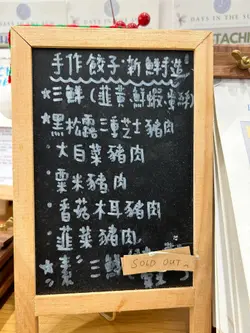 DAYS IN THE
TACHI
手作餃子·新鮮手造
★三鮮(韮黃,鮮蝦,
★黑松露三重芝士豬肉
·大白菜豬肉
·粟米豬肉
·香菇木耳豬肉
·韮菜豬肉
★素 三鮮
SOLD OUT